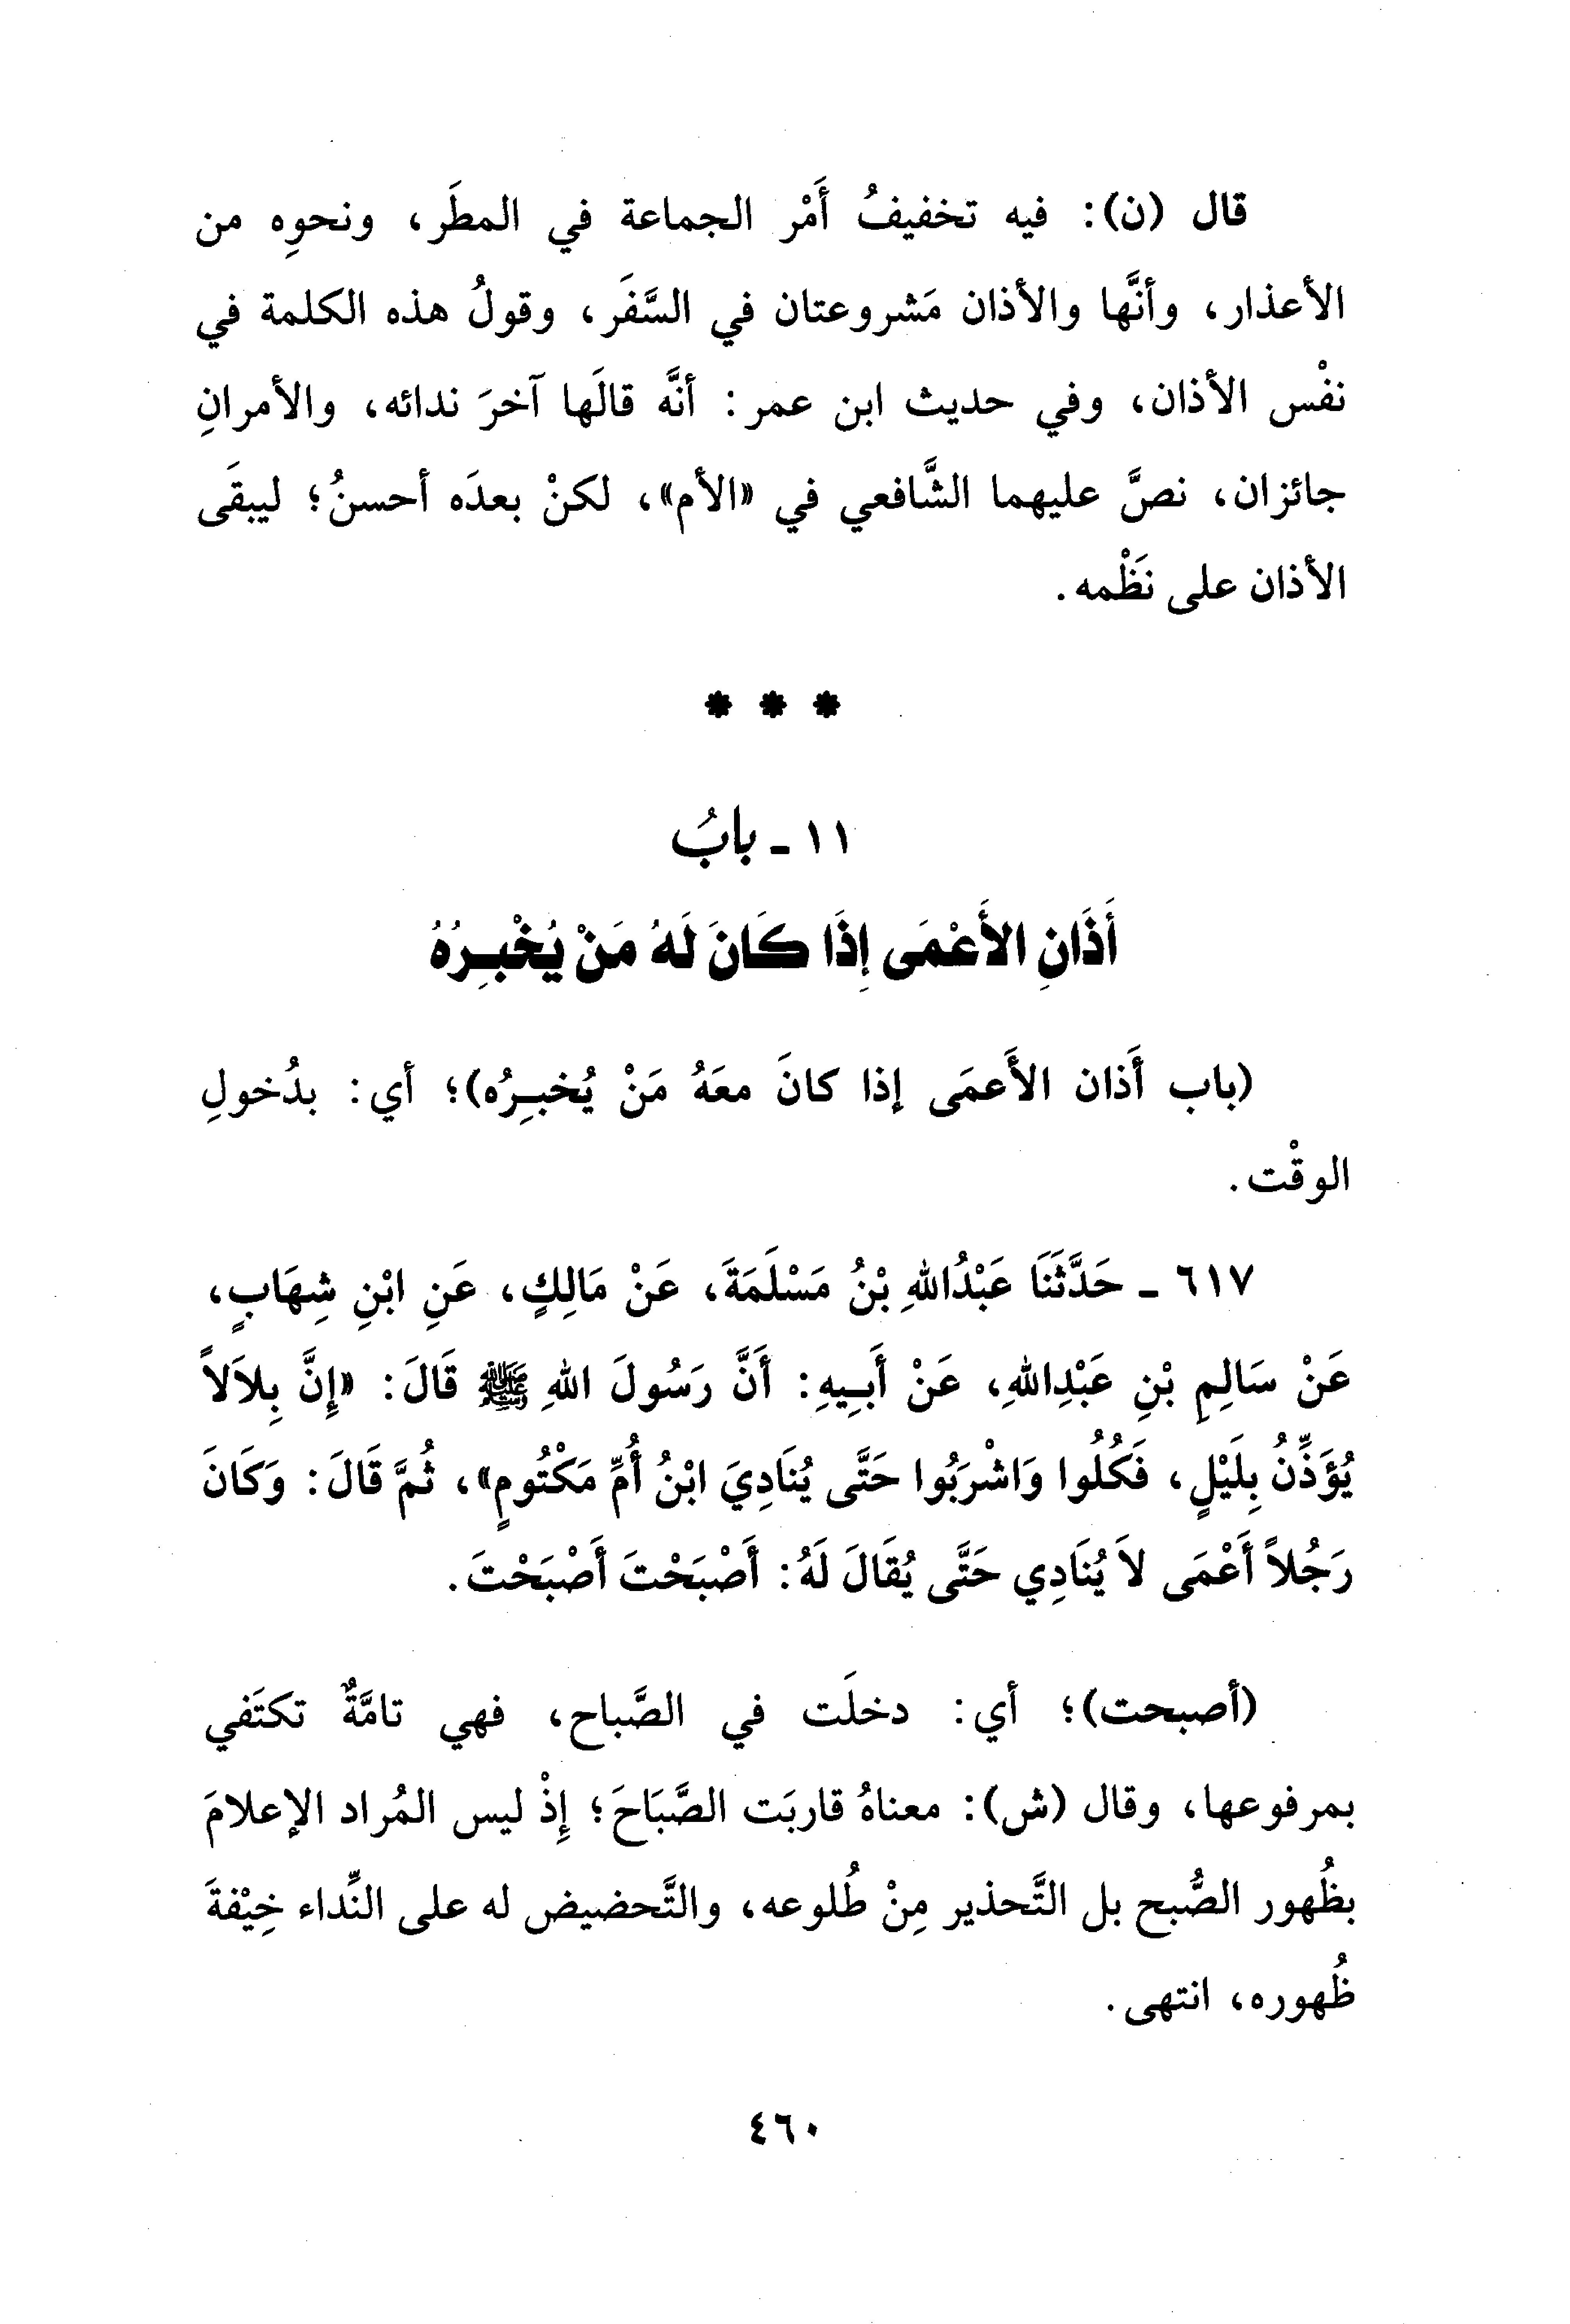 قال (ن): فيه تخفيفُ أَمْر الجماعة في المطَر، ونحوِه من
الأعذار، وأنَّها والأذان مَشروعتان في السَّفَر، وقولُ هذه الكلمة في
نفْس الأذان، وفي حديث ابن عمر: أنَّه قالَها آخرَ ندائه، والأمرانِ
جائزان، نصَّ عليهما الشَّافعي في «الأم»، لكنْ بعدَه أحسنُ؛ ليبقَى
الأذان على نَظْمه.
* * *
١١ - بابُ
أَذَانِ الأَعْمَى إِذَا كَانَ لَهُ مَنْ يُخْبِرُهُ
(باب أَذان الأَعمَى إذا كانَ معَهُ مَنْ يُخبِرُه)؛ أي: بدُخولِ
الوقْت.
٦١٧ - حَدَّثَنَا عَبْدُاللهِ بْنُ مَسْلَمَةَ، عَنْ مَالِكٍ، عَنِ ابْنِ شِهَابٍ،
عَنْ سَالِمِ بْنِ عَبْدِاللهِ، عَنْ أَبِيهِ: أَنَّ رَسُولَ اللهِ ﷺ قَالَ: «إِنَّ بِلاَلاً
يُؤَذِّنُ بِلَيْلٍ، فَكُلُوا وَاشْرَبُوا حَتَّى يُنَادِيَ ابْنُ أُمِّ مَكْتُومٍ»، ثُمَّ قَالَ: وَكَانَ
رَجُلاً أَعْمَى لاَ يُنَادِي حَتَّى يُقَالَ لَهُ: أَصْبَحْتَ أَصْبَحْتَ.
(أصبحت)؛ أي: دخلَت في الصَّباح، فهي تامَّةٌ تكتَفي
بمرفوعها، وقال (ش): معناهُ قاربَت الصَّبَاحَ؛ إِذْ ليس المُراد الإعلامَ
بظُهور الصُّبح بل التَّحذير مِنْ طُلوعه، والتَّحضيض له على النِّداء خِيْفةَ
ظُهوره، انتهى.
٤٦٠